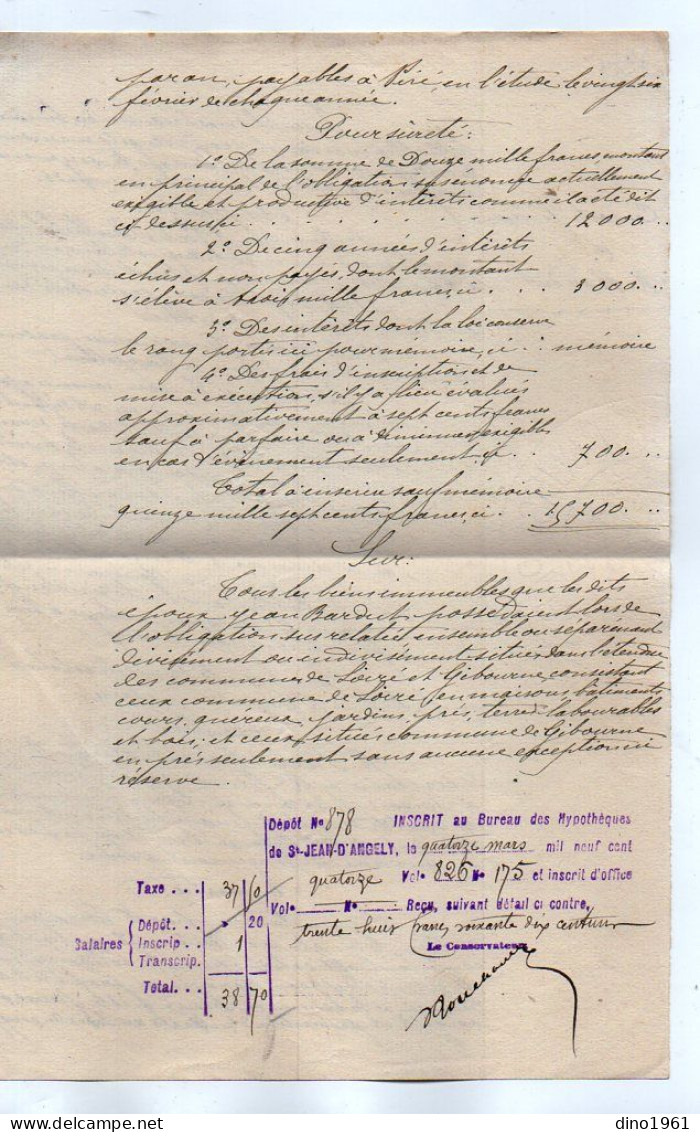 par an, payables à Siré, en l'étude le vingt six
février de chaque année.
Pour sûreté:
1º De la somme de Douze mille francs, montant
en principal de l'obligation susénoncée actuellement
exigible et productive d'intérêts comme il a été dit
ci dessus ci . . . . . . . 12000 . .
2º De cinq années d'intérêts
échus et non payés, dont le montant
s'élève à trois mille francs, ci . . . 3000 . .
3º Des intérêts dont la loi conserve
le rang portés ici pour mémoire, ci . . mémoire
4º Des frais d'inscription et de
mise à exécution, s'il y a lieu évalués
approximativement à sept cents francs
sauf à parfaire ou à diminuer, exigibles
en cas d'évènement seulement, ci . . 700 . .
Total à inscrire sauf mémoire
quinze mille sept cents francs, ci . . 15700 . .
Sur:
Tous les biens immeubles que les dits
époux Jean Bardut possédaient lors de
l'obligation sus relatée ensemble ou séparément
divisément ou indivisément situés dans l'étendue
des communes de Loiré et Gibourne consistant
ceux commune de Loiré en maisons, bâtiments,
cours, quéreux, jardins, prés, terres labourables
et bois, et ceux situés commune de Gibourne
en prés seulement sans aucune exception ni
réserve.
Dépôt Nº 878 INSCRIT au Bureau des Hypothèques
de St-JEAN-D'ANGELY, le quatorze mars mil neuf cent
quatorze Vol. 826 Nº 175 et inscrit d'office
Vol. Nº Reçu, suivant détail ci contre,
trente huit francs soixante dix centimes
Le Conservateur
Taxe . . . 37 50
Salaires
Dépôt. . . » 20
Inscrip . . 1
Transcrip.
Total. . . 38 70
dino1961